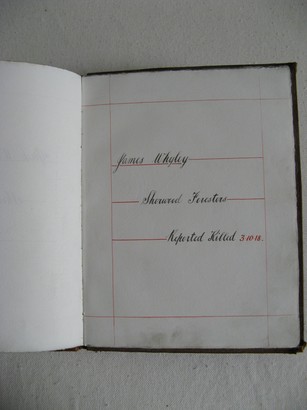 James Whyley
Sherwood Foresters
Reported Killed 3·10·18.